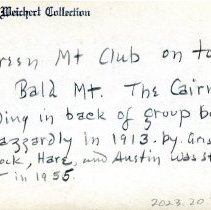 Weichert Collection
reen Mt Club on to
Bald Mt. The Cairn
ding in back of group b
azzardly in 1913. by. Gris
ock, Hare, and Austin was st
in 1955.
2023.20